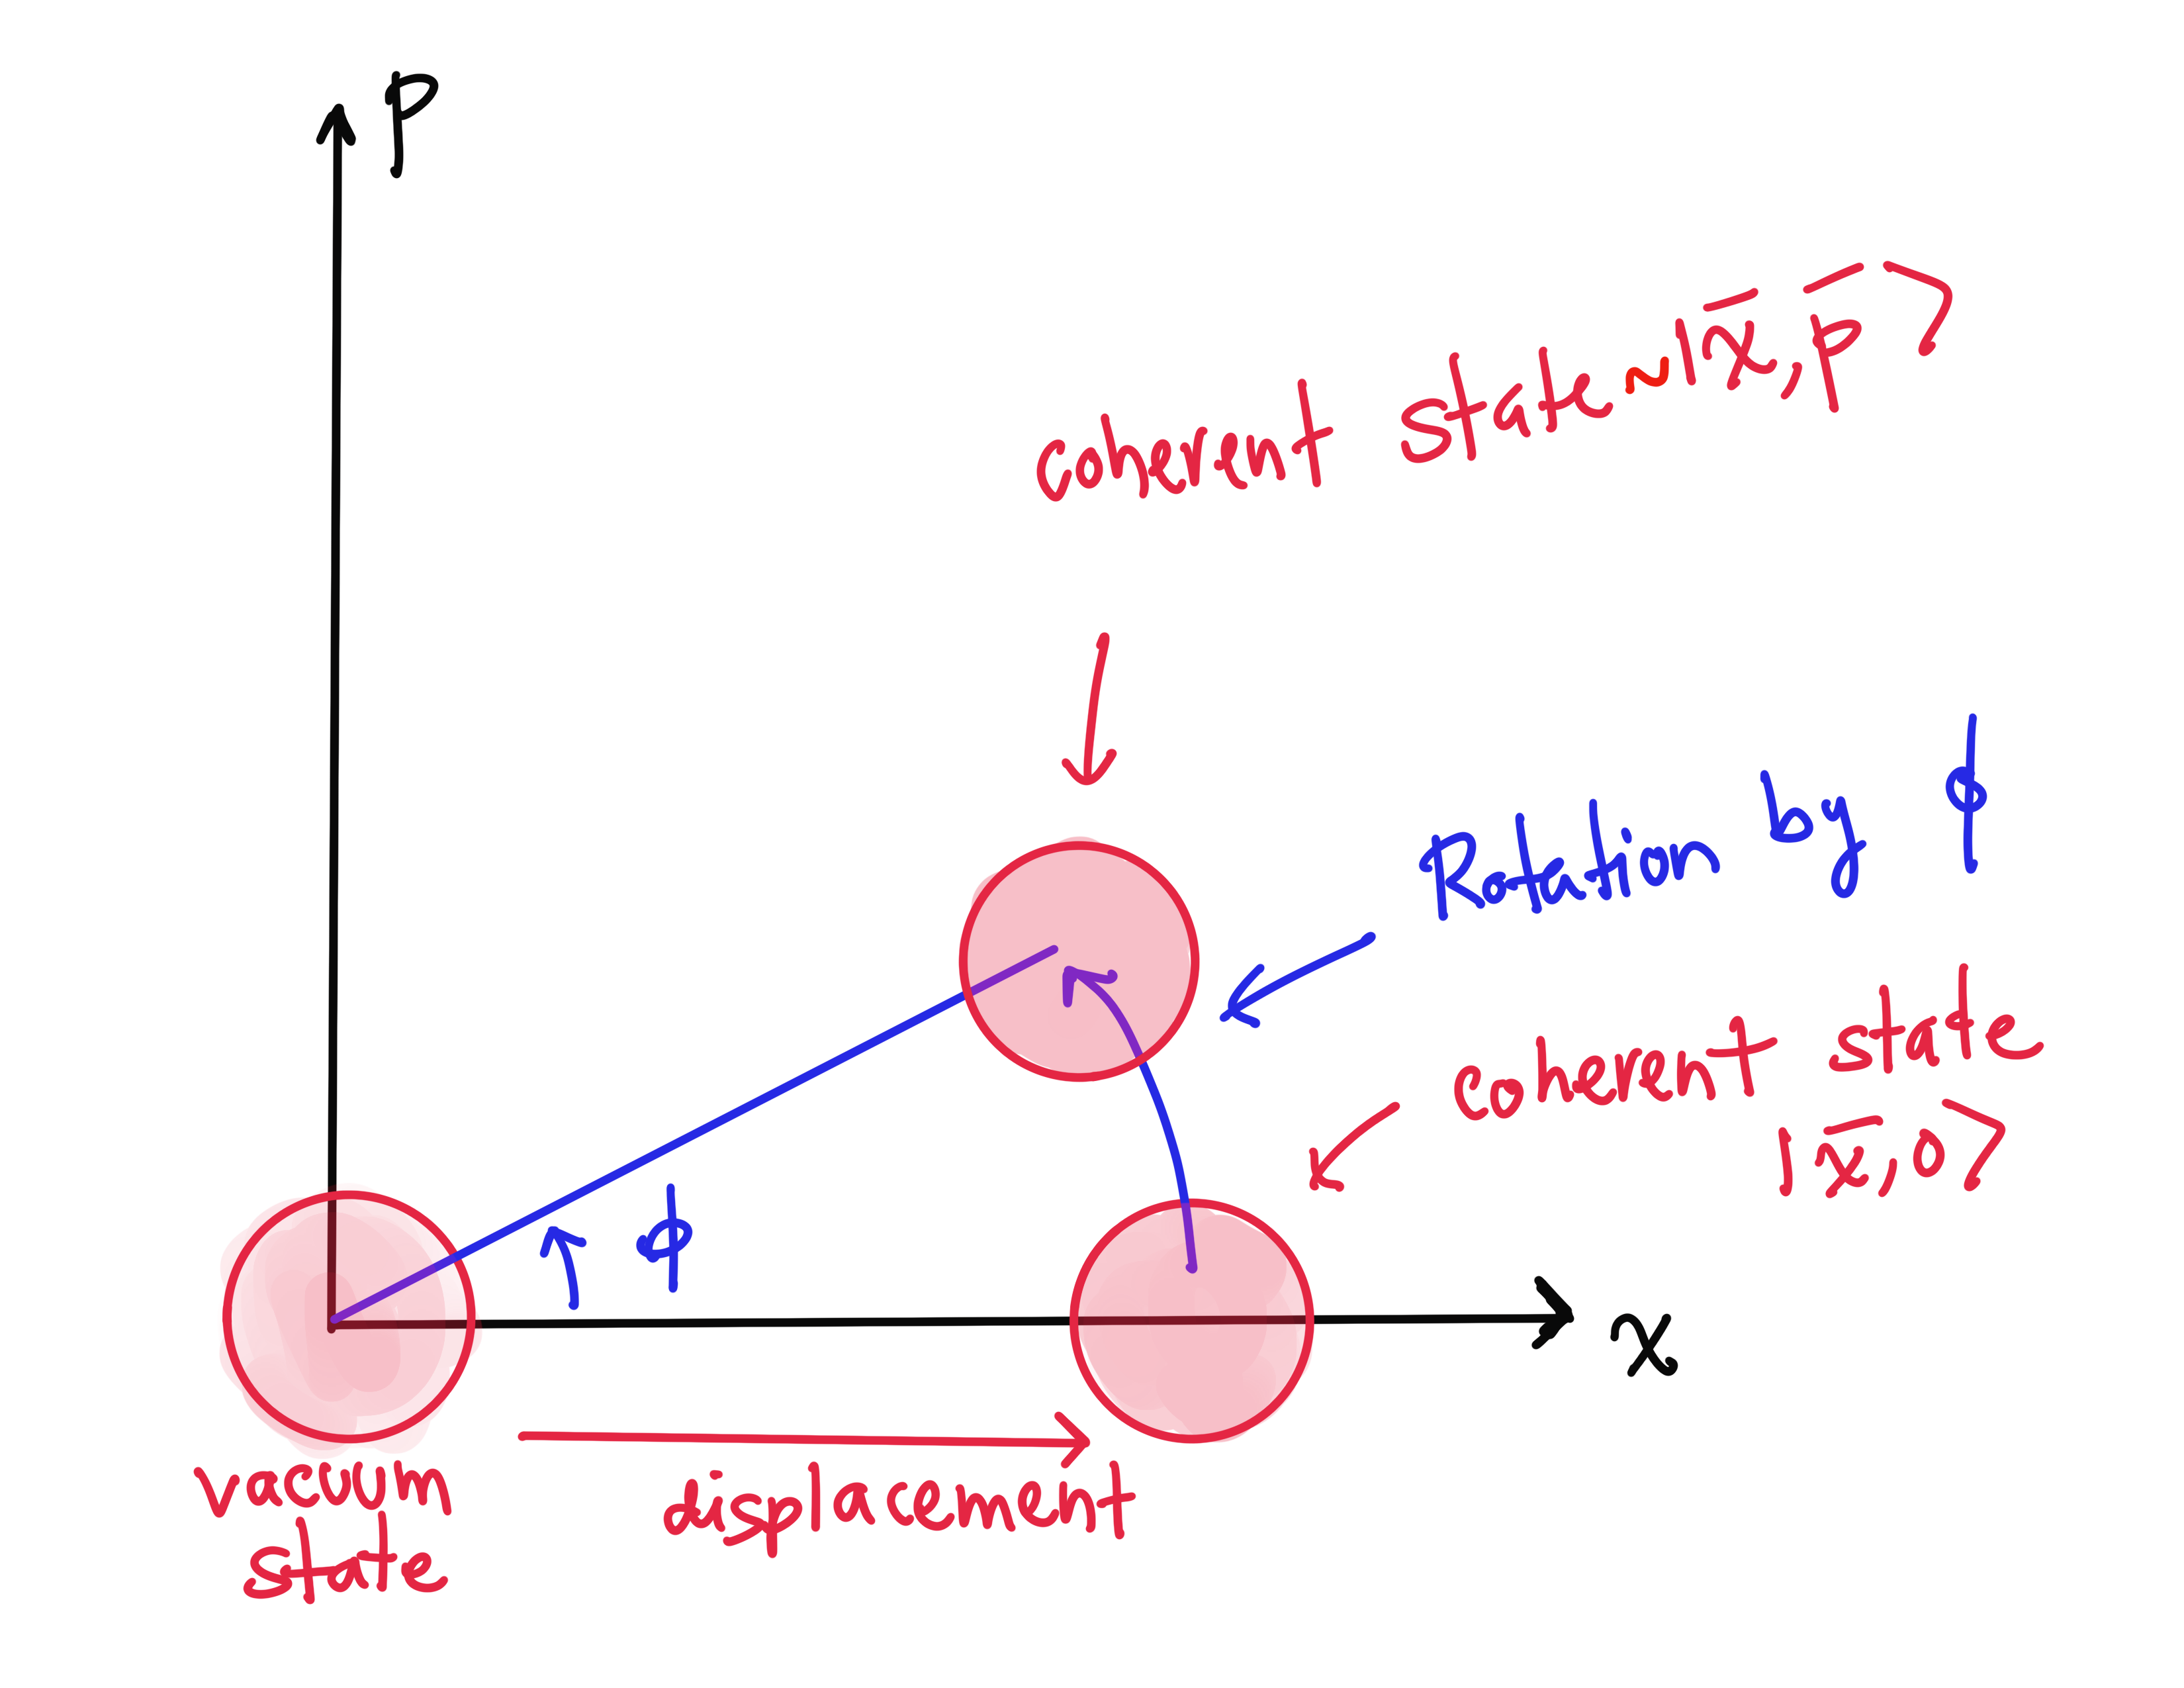 p
coherent state ~ |x̄, p̄⟩
Rotation by ϕ
coherent state
|x̄, 0⟩
ϕ
x
vacuum
state
displacement